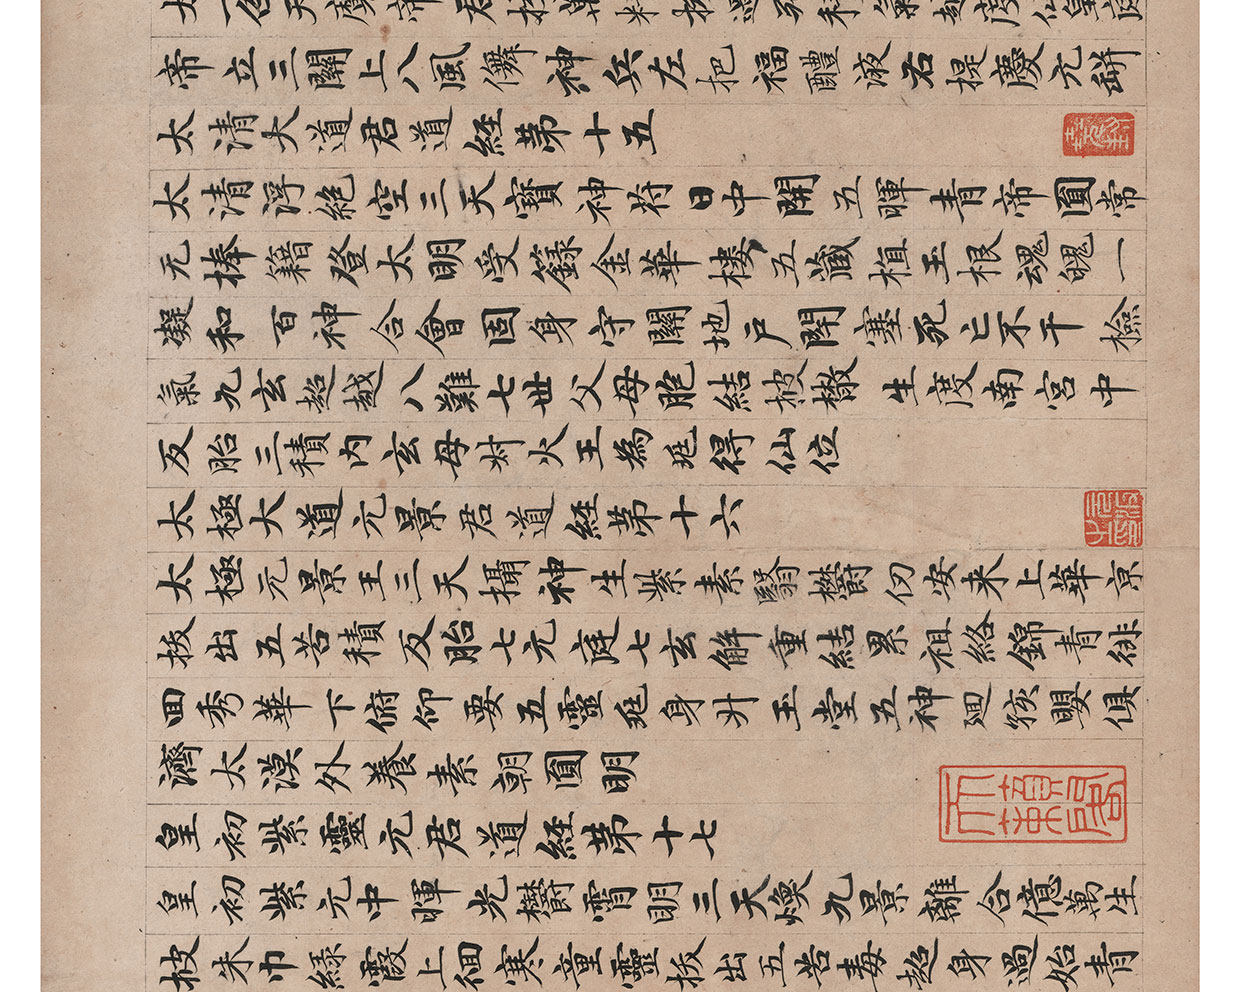 帝立三關上八風儛神兵左把福醴液右提慶元瓶
太清大道君道經第十五
太清浮絕空三天寶神苻日中開五暉青帝圓常
元捧籍登太明受籙金華樓五藏植玉根魂魄一
凝和百神合會固身守關地戶閇塞死亡不干檢
氣九玄超越八難七世父母胞結披散生度南宮中
反胎三積內玄母火王為延得仙位
太極大道元景君道經第十六
太極元景王三天攝神生紫素翳欝仞安来上華京
拔出五苦積反胎七元庭七玄解重結累祖絡錦青徘
田秀華下俯仰要五靈延身升玉堂五神迴孩嬰俱
濟太漠外養素朝圓明
皇初紫靈元君道經第十七
皇初紫元中暉光欝霄明三天煥九景離合億萬生
披朱巾綠霞上徊寒童靈拔出五苦毒超身過始青